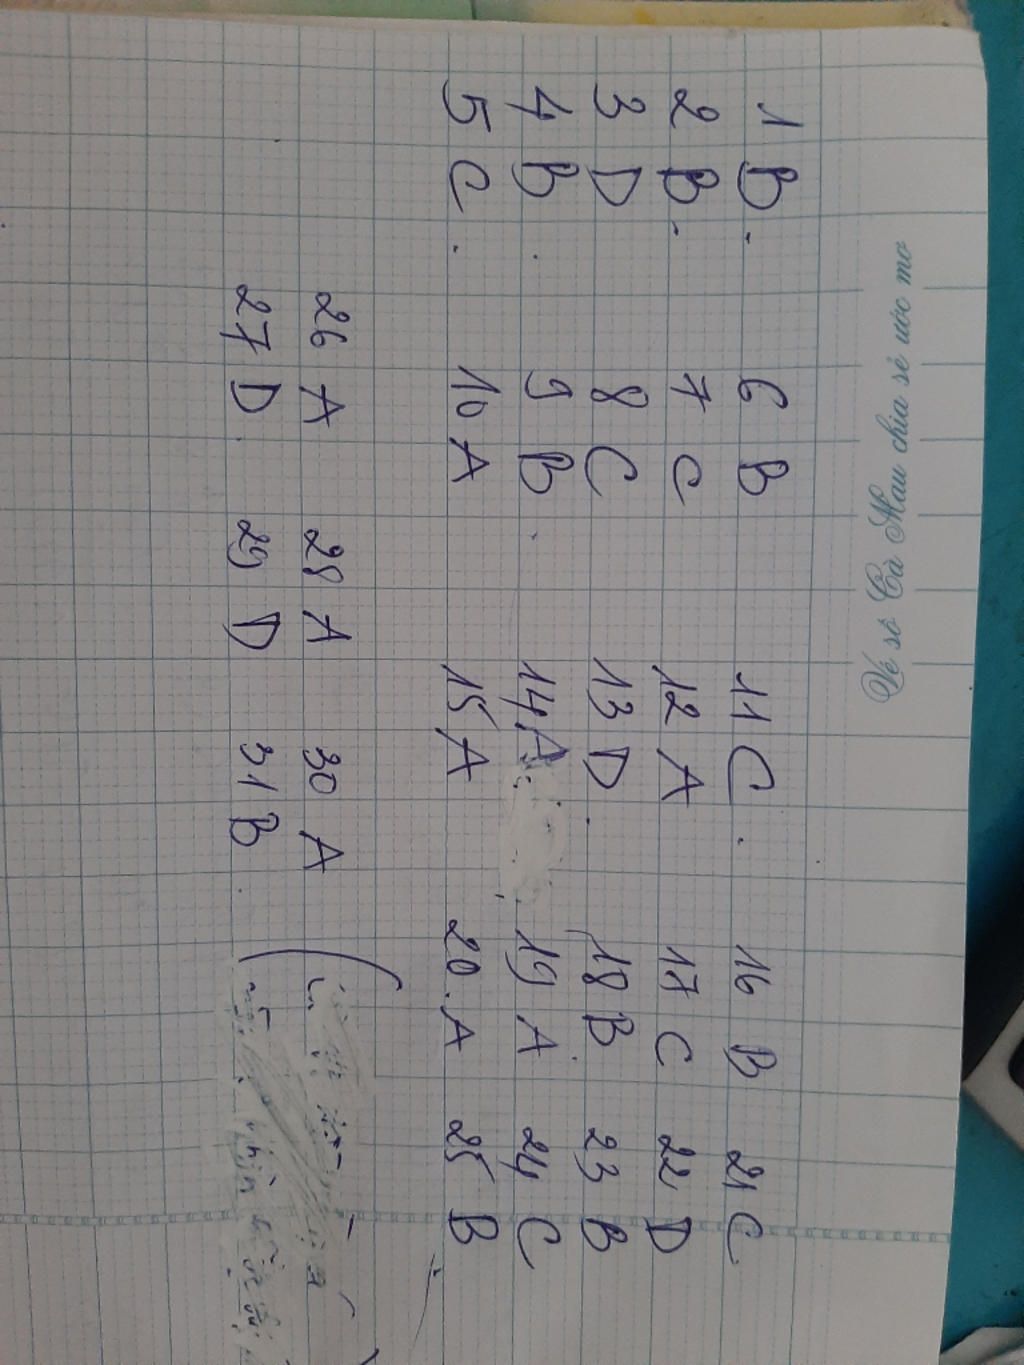 Vé số Cà Mau chia sẻ ước mơ
1 B. 6 B 11 C. 16 B 21 C
2 B. 7 C 12 A 17 C 22 D
3 D 8 C 13 D. 18 B 23 B
4 B. 9 B. 14 A 19 A. 24 C
5 C. 10 A 15 A 20. A 25 B
26 A 28 A 30 A
27 D. 29 D 31 B.